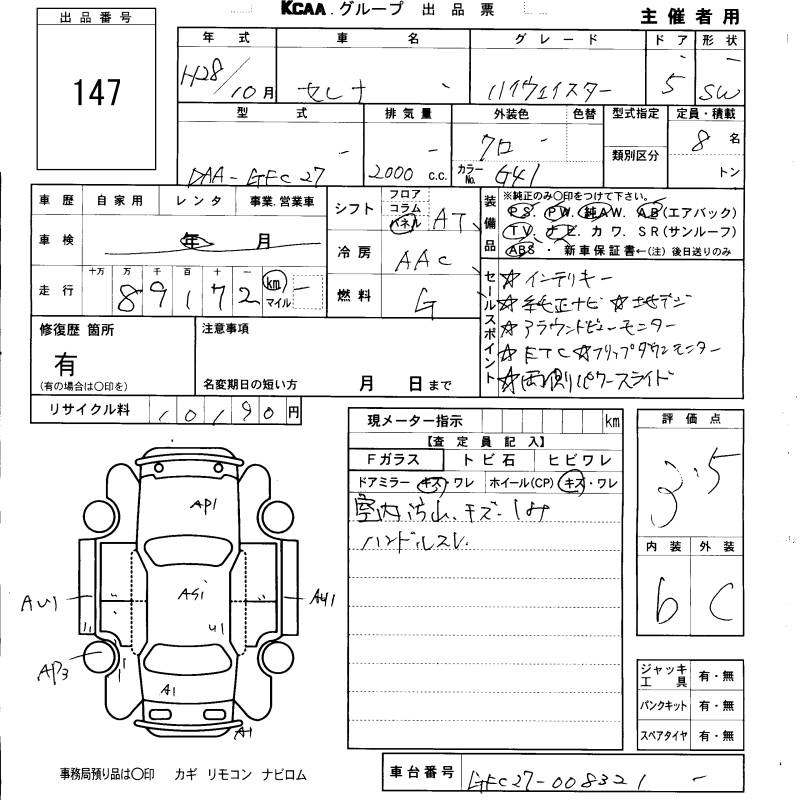 KCAA.グループ 出品票
主催者用
出品番号
147
年式 車名 グレード ドア 形状
H28/10月 セレナ - ハイウェイスター - 5 - SW
型式 排気量 外装色 色替 型式指定 定員・積載
DAA-GFC27 - 2000 c.c. クロ - 8名
カラーNo. G41 類別区分 トン
車歴 自家用 レンタ 事業.営業車
車検 年 月
走行 十万 万 千 百 十 一
89172 km マイル -
シフト フロア コラム パネル AT
冷房 AAC
燃料 G
装備品 ※純正のみ○印をつけて下さい。
PS. PW. 純AW. AB(エアバック)
TV. ナビ. カワ. SR(サンルーフ)
ABS・新車保証書←(注)後日送りのみ
セールスポイント
☆インテリキー
☆純正ナビ ☆地デジ
☆アラウンドビューモニター
☆ETC ☆フリップダウンモニター
☆両側パワースライド
修復歴 箇所
有
(有の場合は○印を)
注意事項
名変期日の短い方 月 日まで
リサイクル料 10190円
現メーター指示 km
【査定員記入】
Fガラス トビ石 ヒビワレ
ドアミラー キズ・ワレ ホイール(CP) キズ・ワレ
室内汚れ、キズ・しみ
ハンドルスレ
評価点
3.5
内装 外装
b C
AP1
AS1
U1
AU1
AU1
AP3
A1
A1
ジャッキ工具 有・無
パンクキット 有・無
スペアタイヤ 有・無
事務局預り品は○印 カギ リモコン ナビロム
車台番号 GFC27-008321 -